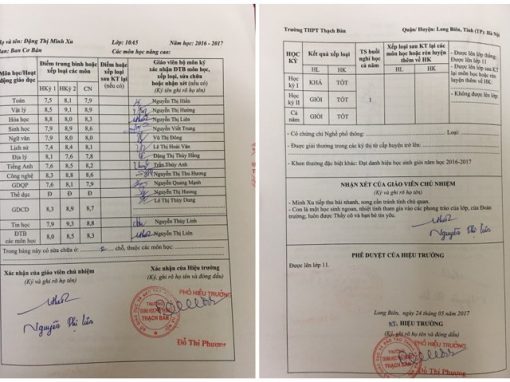 Họ và tên: Đặng Thị Minh Xu Lớp: 10A5 Năm học: 2016 - 2017
Ban Cơ Bản Các môn học nâng cao:
Môn học/Hoạt động giáo dục
Điểm trung bình hoặc xếp loại các môn
HKỳ I HKỳ 2 CN
Điểm hoặc xếp loại sau KT lại (nếu có)
Giáo viên bộ môn ký xác nhận ĐTB môn học, xếp loại, sửa chữa hoặc nhận xét (nếu có)
(Ký ghi rõ họ tên)
Toán 7,5 8,1 7,9 Nguyễn Thị Hiền
Vật lý 8,5 9,1 8,9 Nguyễn Thị Hường
Hóa học 8,8 8,0 8,3 Nguyễn Thị Liên
Sinh học 7,9 8,9 8,6 Nguyễn Viết Trung
Ngữ văn 7,9 8,0 8,0 Vũ Thị Đông
Lịch sử 7,4 8,4 8,1 Lê Thị Hoài Vân
Địa lý 8,1 7,6 7,8 Đặng Thị Thúy Hằng
Tiếng Anh 7,6 8,5 8,2 Trần Thúy Anh
Công nghệ 8,3 8,8 8,6 Nguyễn Thị Thu Hương
GDQP 7,6 8,1 7,9 Nguyễn Quang Mạnh
Thể dục Đ Đ Đ Nguyễn Thị Hà
GDCD 8,3 8,9 8,7 Lê Thị Thùy Dung
Tin học 7,9 9,3 8,8 Nguyễn Thùy Linh
ĐTB các môn học 8,0 8,5 8,3 Nguyễn Thị Liên
Trong bảng này có sửa chữa ở: chỗ, thuộc các môn học:
Xác nhận của giáo viên chủ nhiệm
(Ký và ghi rõ họ tên)
Nguyễn Thị Liên
Xác nhận của Hiệu trưởng
(Ký, ghi rõ họ tên và đóng dấu)
PHÓ HIỆU TRƯỞNG
Đỗ Thị Phương
Trường THPT Thạch Bàn Quận/ Huyện: Long Biên, Tỉnh (TP): Hà Nội
HỌC KỲ
Kết quả xếp loại
HL HK
TS buổi nghỉ học cả năm
Xếp loại sau KT lại các môn học hoặc rèn luyện thêm về HK
HL HK
- Được lên lớp thẳng:
Được lên lớp
- Được lên lớp sau KT lại môn học hoặc rèn luyện thêm về HK
- Không được lên lớp:
Học kỳ I KHÁ TỐT
Học kỳ II GIỎI TỐT
Cả năm GIỎI TỐT
- Có chứng chỉ Nghề phổ thông: Loại:
- Được giải thưởng trong các kỳ thi từ cấp huyện trở lên:
- Khen thưởng đặc biệt khác: Đạt danh hiệu học sinh giỏi năm học 2016-2017
NHẬN XÉT CỦA GIÁO VIÊN CHỦ NHIỆM
(Ký và ghi rõ họ tên)
- Minh Xu tiếp thu bài nhanh, song cần tránh tính chủ quan.
- Con là một học sinh ngoan, nhiệt tình tham gia vào các phong trào của lớp, của Đoàn trường, luôn được Thầy cô và bạn bè tin yêu.
Nguyễn Thị Liên
PHÊ DUYỆT CỦA HIỆU TRƯỞNG
Được lên lớp 11.
Long Biên, ngày 24 tháng 05 năm 2017
KT. HIỆU TRƯỞNG
(Ký, ghi rõ họ tên và đóng dấu)
PHÓ HIỆU TRƯỞNG
Đỗ Thị Phương